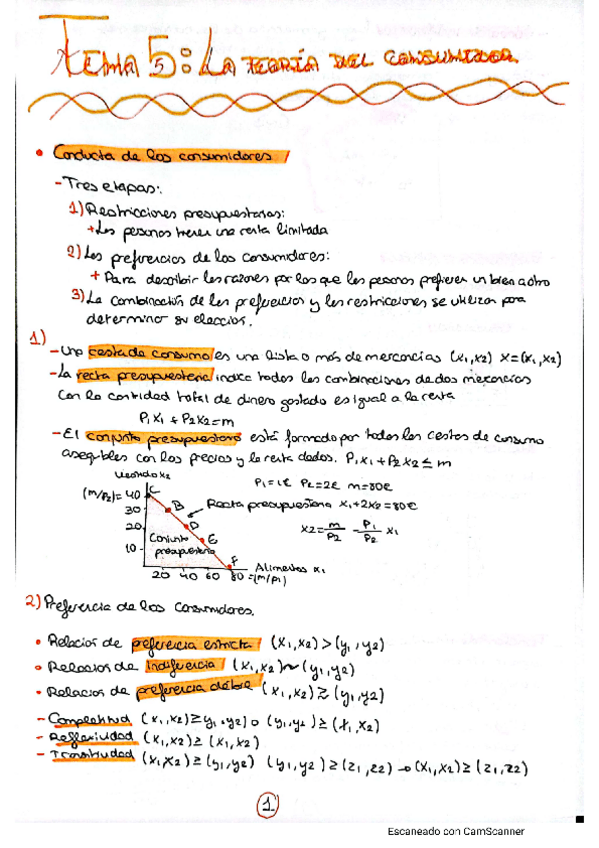 Tema 5: La teoría del consumidor.
• Conducta de los consumidores
- Tres etapas:
1) Restricciones presupuestarias:
+ Las personas tienen una renta limitada
2) Las preferencias de los consumidores:
+ Para describir las razones por las que las personas prefieren un bien a otro
3) La combinación de las preferencias y las restricciones se utiliza para
determinar su elección.
1)
- Una cesta de consumo es una lista o más de mercancías (x1,x2) x=(x1,x2)
- La recta presupuestaria indica todas las combinaciones de dos mercancías
con la cantidad total de dinero gastado es igual a la renta
P1X1 + P2X2=m
- El conjunto presupuestario está formado por todas las cestas de consumo
asequibles con los precios y la renta dados. P1X1+P2X2≤m
Vestido x2
P1=1€ P2=2€ m=80€
(m/P2)= 40 C
30 B
Recta presupuestaria x1+2x2=80€
20 D
x2= m/P2 - P1/P2 x1
Conjunto E
10 presupuestario
F
Alimentos x1
20 40 60 80 =(m/P1)
2) Preferencia de los consumidores.
• Relación de preferencia estricta (x1,x2)>(y1,y2)
• Relación de indiferencia (x1,x2)~(y1,y2)
• Relación de preferencia débil (x1,x2)≳(y1,y2)
- Completitud (x1,x2)≥y1,y2) o (y1,y2)≥(x1,x2)
- Reflexividad (x1,x2)≥(x1,x2)
- Transitividad (x1,x2)≥(y1,y2) (y1,y2)≥(z1,z2) → (x1,x2)≥(z1,z2)
1
Escaneado con CamScanner